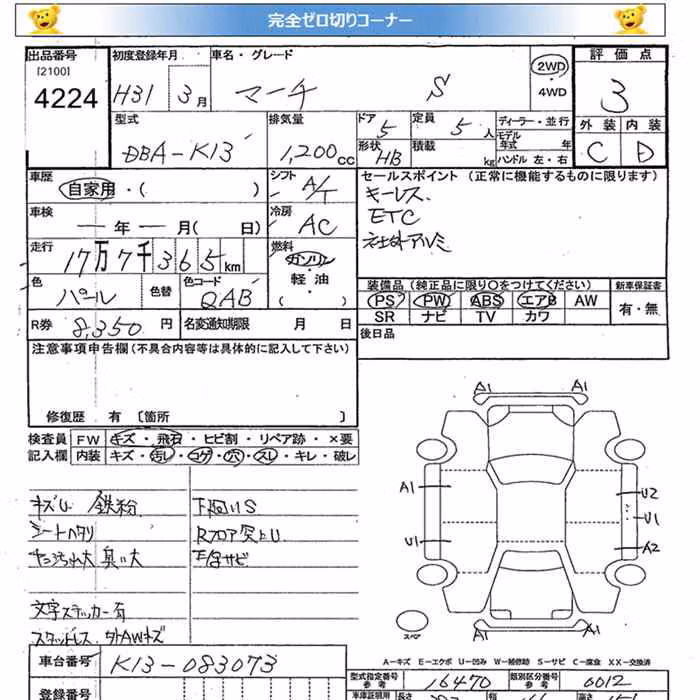 完全ゼロ切りコーナー
出品番号 初度登録年月 車名・グレード 評価点
[2100]
4224 H31 3月 マーチ S 2WD ・ 4WD 3
型式 排気量 ドア 5 定員 5人 ディーラー・並行 外装 内装
DBA-K13 1,200cc 形状 HB 積載 kg モデル年式 年 C D
ハンドル 左・右
車歴 シフト A/T セールスポイント (正常に機能するものに限ります)
自家用・( ) キーレス
車検 冷房 ETC
ー年ー月( 日) AC 社外アルミ
走行 燃料
17万7千365km ガソリン・軽油・( )
色 色替 色コード 装備品 (純正品に限り○をつけてください) 新車保証書
パール QAB PS PW ABS エアB AW 有・無
SR ナビ TV カワ
R券 8,350円 名変通知期限 月 日 後日品
注意事項申告欄(不具合内容等は具体的に記入して下さい)
修復歴 有 〔箇所 〕
検査員 FW キズ・飛石・ヒビ割・リペア跡・×要
記入欄 内装 キズ・汚レ・コゲ・穴・スレ・キレ・破レ
キズU 鉄粉 下廻りS
シートヘタリ Rフロア突上U
汚れ大 臭い大 サビ
文字ステッカー有
スタッドレス 外AWキズ
A1 A1
A1 U2
U1
U1 A2
スペア
A-キズ E-エクボ U-凹み W-補修跡 S-サビ C-腐食 XX-交換済
車台番号 K13-083073
型式指定番号 参考 16470 類別区分番号 参考 0012
登録番号 車庫証明用 長さ 幅 高さ